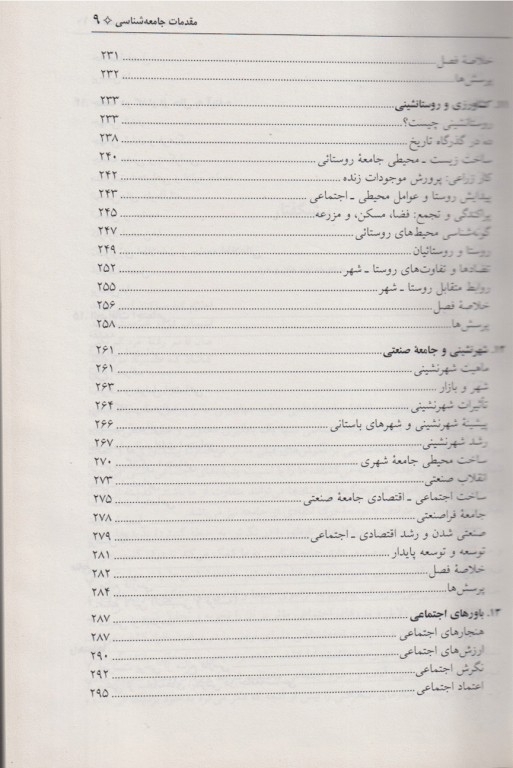 مقدمات جامعه‌شناسی ✧ ۹
خلاصهٔ فصل ........ ۲۳۱
پرسش‌ها ........ ۲۳۲
کشاورزی و روستانشینی ........ ۲۳۳
روستانشینی چیست؟ ........ ۲۳۳
ده در گذرگاه تاریخ ........ ۲۳۸
ساخت زیست ـ محیطی جامعهٔ روستائی ........ ۲۴۰
کار زراعی: پرورش موجودات زنده ........ ۲۴۲
پیدایش روستا و عوامل محیطی ـ اجتماعی ........ ۲۴۳
پراکندگی و تجمع: فضا، مسکن، و مزرعه ........ ۲۴۵
گونه‌شناسی محیط‌های روستائی ........ ۲۴۷
روستا و روستائیان ........ ۲۴۹
تضادها و تفاوت‌های روستا ـ شهر ........ ۲۵۲
روابط متقابل روستا ـ شهر ........ ۲۵۵
خلاصهٔ فصل ........ ۲۵۶
پرسش‌ها ........ ۲۵۸
۱۲. شهرنشینی و جامعهٔ صنعتی ........ ۲۶۱
ماهیت شهرنشینی ........ ۲۶۱
شهر و بازار ........ ۲۶۳
تأثیرات شهرنشینی ........ ۲۶۴
پیشینهٔ شهرنشینی و شهرهای باستانی ........ ۲۶۶
رشد شهرنشینی ........ ۲۶۷
ساخت محیطی جامعهٔ شهری ........ ۲۷۰
انقلاب صنعتی ........ ۲۷۳
ساخت اجتماعی ـ اقتصادی جامعهٔ صنعتی ........ ۲۷۵
جامعهٔ فراصنعتی ........ ۲۷۸
صنعتی شدن و رشد اقتصادی ـ اجتماعی ........ ۲۷۹
توسعه و توسعه پایدار ........ ۲۸۱
خلاصهٔ فصل ........ ۲۸۲
پرسش‌ها ........ ۲۸۴
۱۳. باورهای اجتماعی ........ ۲۸۷
هنجارهای اجتماعی ........ ۲۸۷
ارزش‌های اجتماعی ........ ۲۹۰
نگرش اجتماعی ........ ۲۹۲
اعتماد اجتماعی ........ ۲۹۵